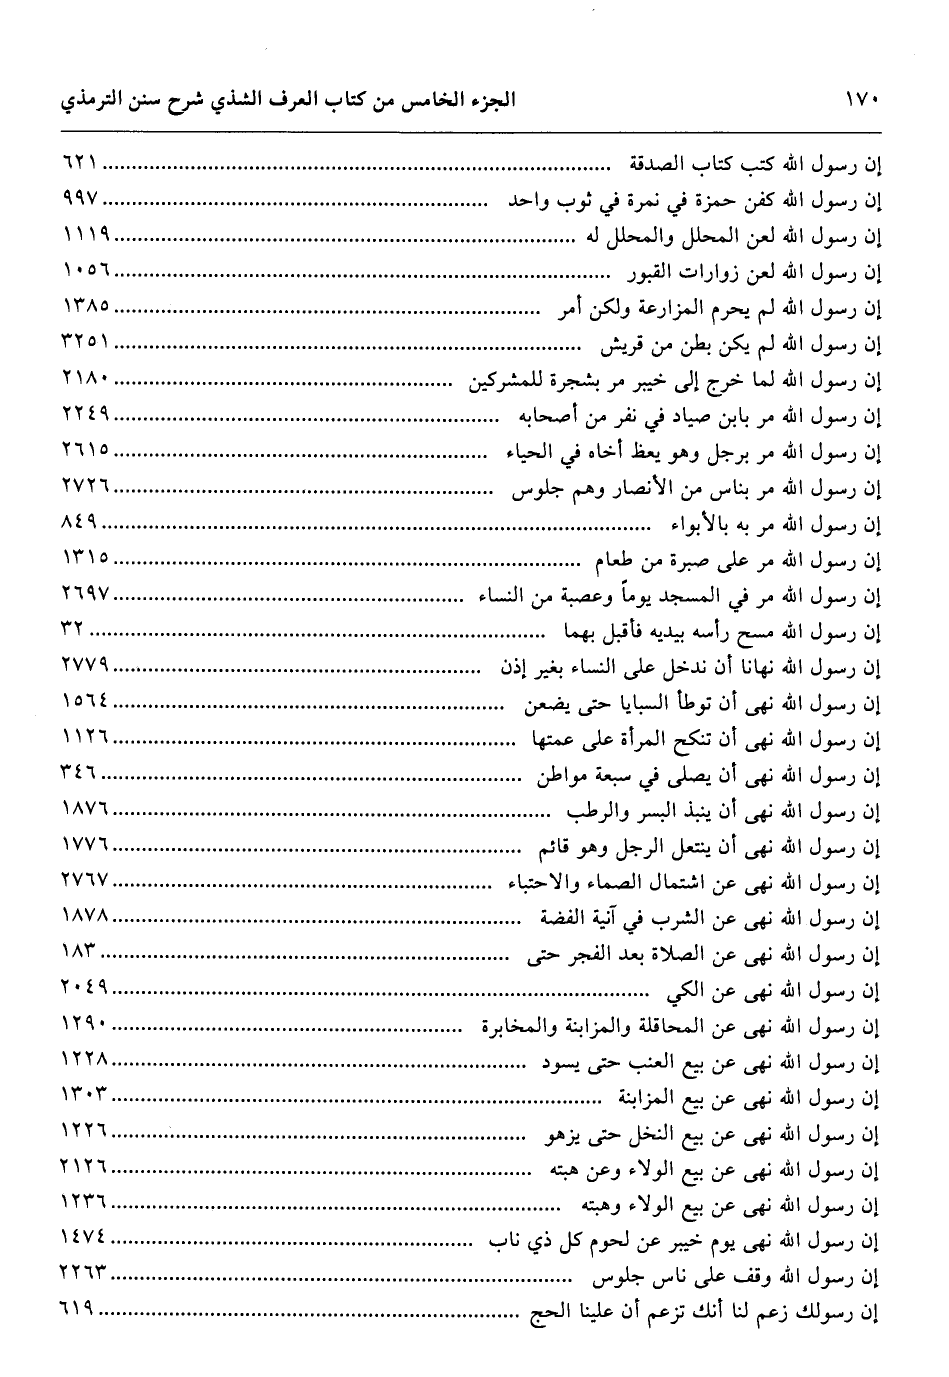 ١٧٠ الجزء الخامس من كتاب العرف الشذي شرح سنن الترمذي
إن رسول الله كتب كتاب الصدقة ........ ٦٢١
إن رسول الله كفن حمزة في نمرة في ثوب واحد ........ ٩٩٧
إن رسول الله لعن المحلل والمحلل له ........ ١١١٩
إن رسول الله لعن زوارات القبور ........ ١٠٥٦
إن رسول الله لم يحرم المزارعة ولكن أمر ........ ١٣٨٥
إن رسول الله لم يكن بطن من قريش ........ ٣٢٥١
إن رسول الله لما خرج إلى خيبر مر بشجرة للمشركين ........ ٢١٨٠
إن رسول الله مر بابن صياد في نفر من أصحابه ........ ٢٢٤٩
إن رسول الله مر برجل وهو يعظ أخاه في الحياء ........ ٢٦١٥
إن رسول الله مر بناس من الأنصار وهم جلوس ........ ٢٧٢٦
إن رسول الله مر به بالأبواء ........ ٨٤٩
إن رسول الله مر على صبرة من طعام ........ ١٣١٥
إن رسول الله مر في المسجد يوماً وعصبة من النساء ........ ٢٦٩٧
إن رسول الله مسح رأسه بيديه فأقبل بهما ........ ٣٢
إن رسول الله نهانا أن ندخل على النساء بغير إذن ........ ٢٧٧٩
إن رسول الله نهى أن توطأ السبايا حتى يضعن ........ ١٥٦٤
إن رسول الله نهى أن تنكح المرأة على عمتها ........ ١١٢٦
إن رسول الله نهى أن يصلى في سبعة مواطن ........ ٣٤٦
إن رسول الله نهى أن ينبذ البسر والرطب ........ ١٨٧٦
إن رسول الله نهى أن ينتعل الرجل وهو قائم ........ ١٧٧٦
إن رسول الله نهى عن اشتمال الصماء والاحتباء ........ ٢٧٦٧
إن رسول الله نهى عن الشرب في آنية الفضة ........ ١٨٧٨
إن رسول الله نهى عن الصلاة بعد الفجر حتى ........ ١٨٣
إن رسول الله نهى عن الكي ........ ٢٠٤٩
إن رسول الله نهى عن المحاقلة والمزابنة والمخابرة ........ ١٢٩٠
إن رسول الله نهى عن بيع العنب حتى يسود ........ ١٢٢٨
إن رسول الله نهى عن بيع المزابنة ........ ١٣٠٣
إن رسول الله نهى عن بيع النخل حتى يزهو ........ ١٢٢٦
إن رسول الله نهى عن بيع الولاء وعن هبته ........ ٢١٢٦
إن رسول الله نهى عن بيع الولاء وهبته ........ ١٢٣٦
إن رسول الله نهى يوم خيبر عن لحوم كل ذي ناب ........ ١٤٧٤
إن رسول الله وقف على ناس جلوس ........ ٢٢٦٣
إن رسولك زعم لنا أنك تزعم أن علينا الحج ........ ٦١٩